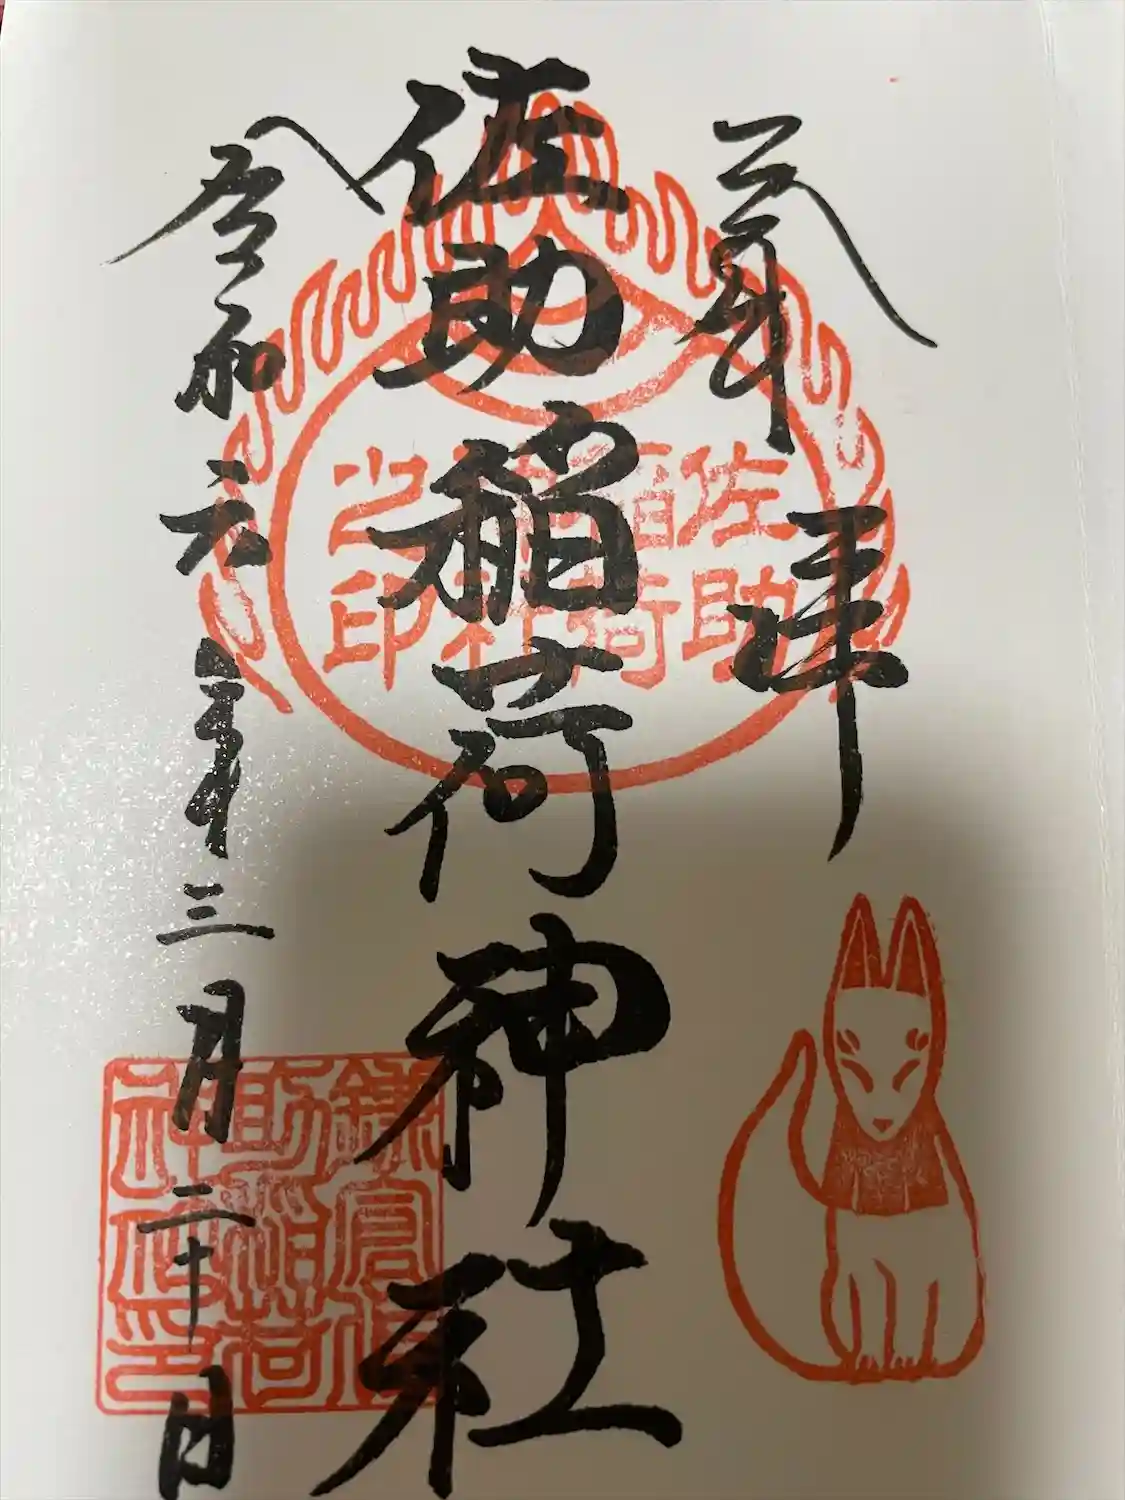 奉拝
佐助稲荷神社
令和六年三月二十日
佐助
稲荷
神社
之印
鎌倉佐
助稲荷
神社之印